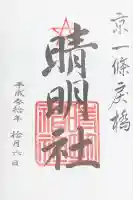 京一條戻橋
晴明社
平成参拾年
拾月六日